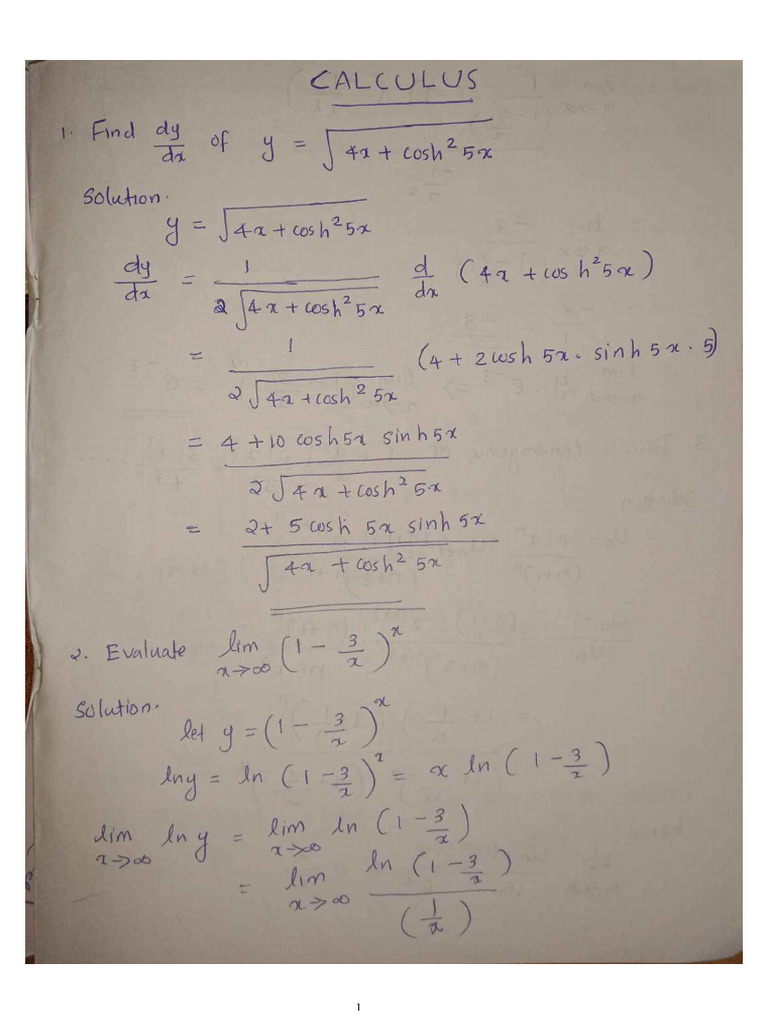 CALCULUS
1. Find dy/dx of y = √(4x + cosh² 5x)
Solution.
y = √(4x + cosh² 5x)
dy/dx = 1/(2√(4x + cosh² 5x)) d/dx (4x + cosh² 5x)
= 1/(2√(4x + cosh² 5x)) (4 + 2cosh 5x . sinh 5x . 5)
= (4 + 10 cosh 5x sinh 5x)/(2√(4x + cosh² 5x))
= (2 + 5 cosh 5x sinh 5x)/√(4x + cosh² 5x)
2. Evaluate lim x→∞ (1 - 3/x)^x
Solution.
let y = (1 - 3/x)^x
lny = ln (1 - 3/x)^x = x ln (1 - 3/x)
lim x→∞ ln y = lim x→∞ ln (1 - 3/x)
= lim x→∞ ln (1 - 3/x)/(1/x)
1